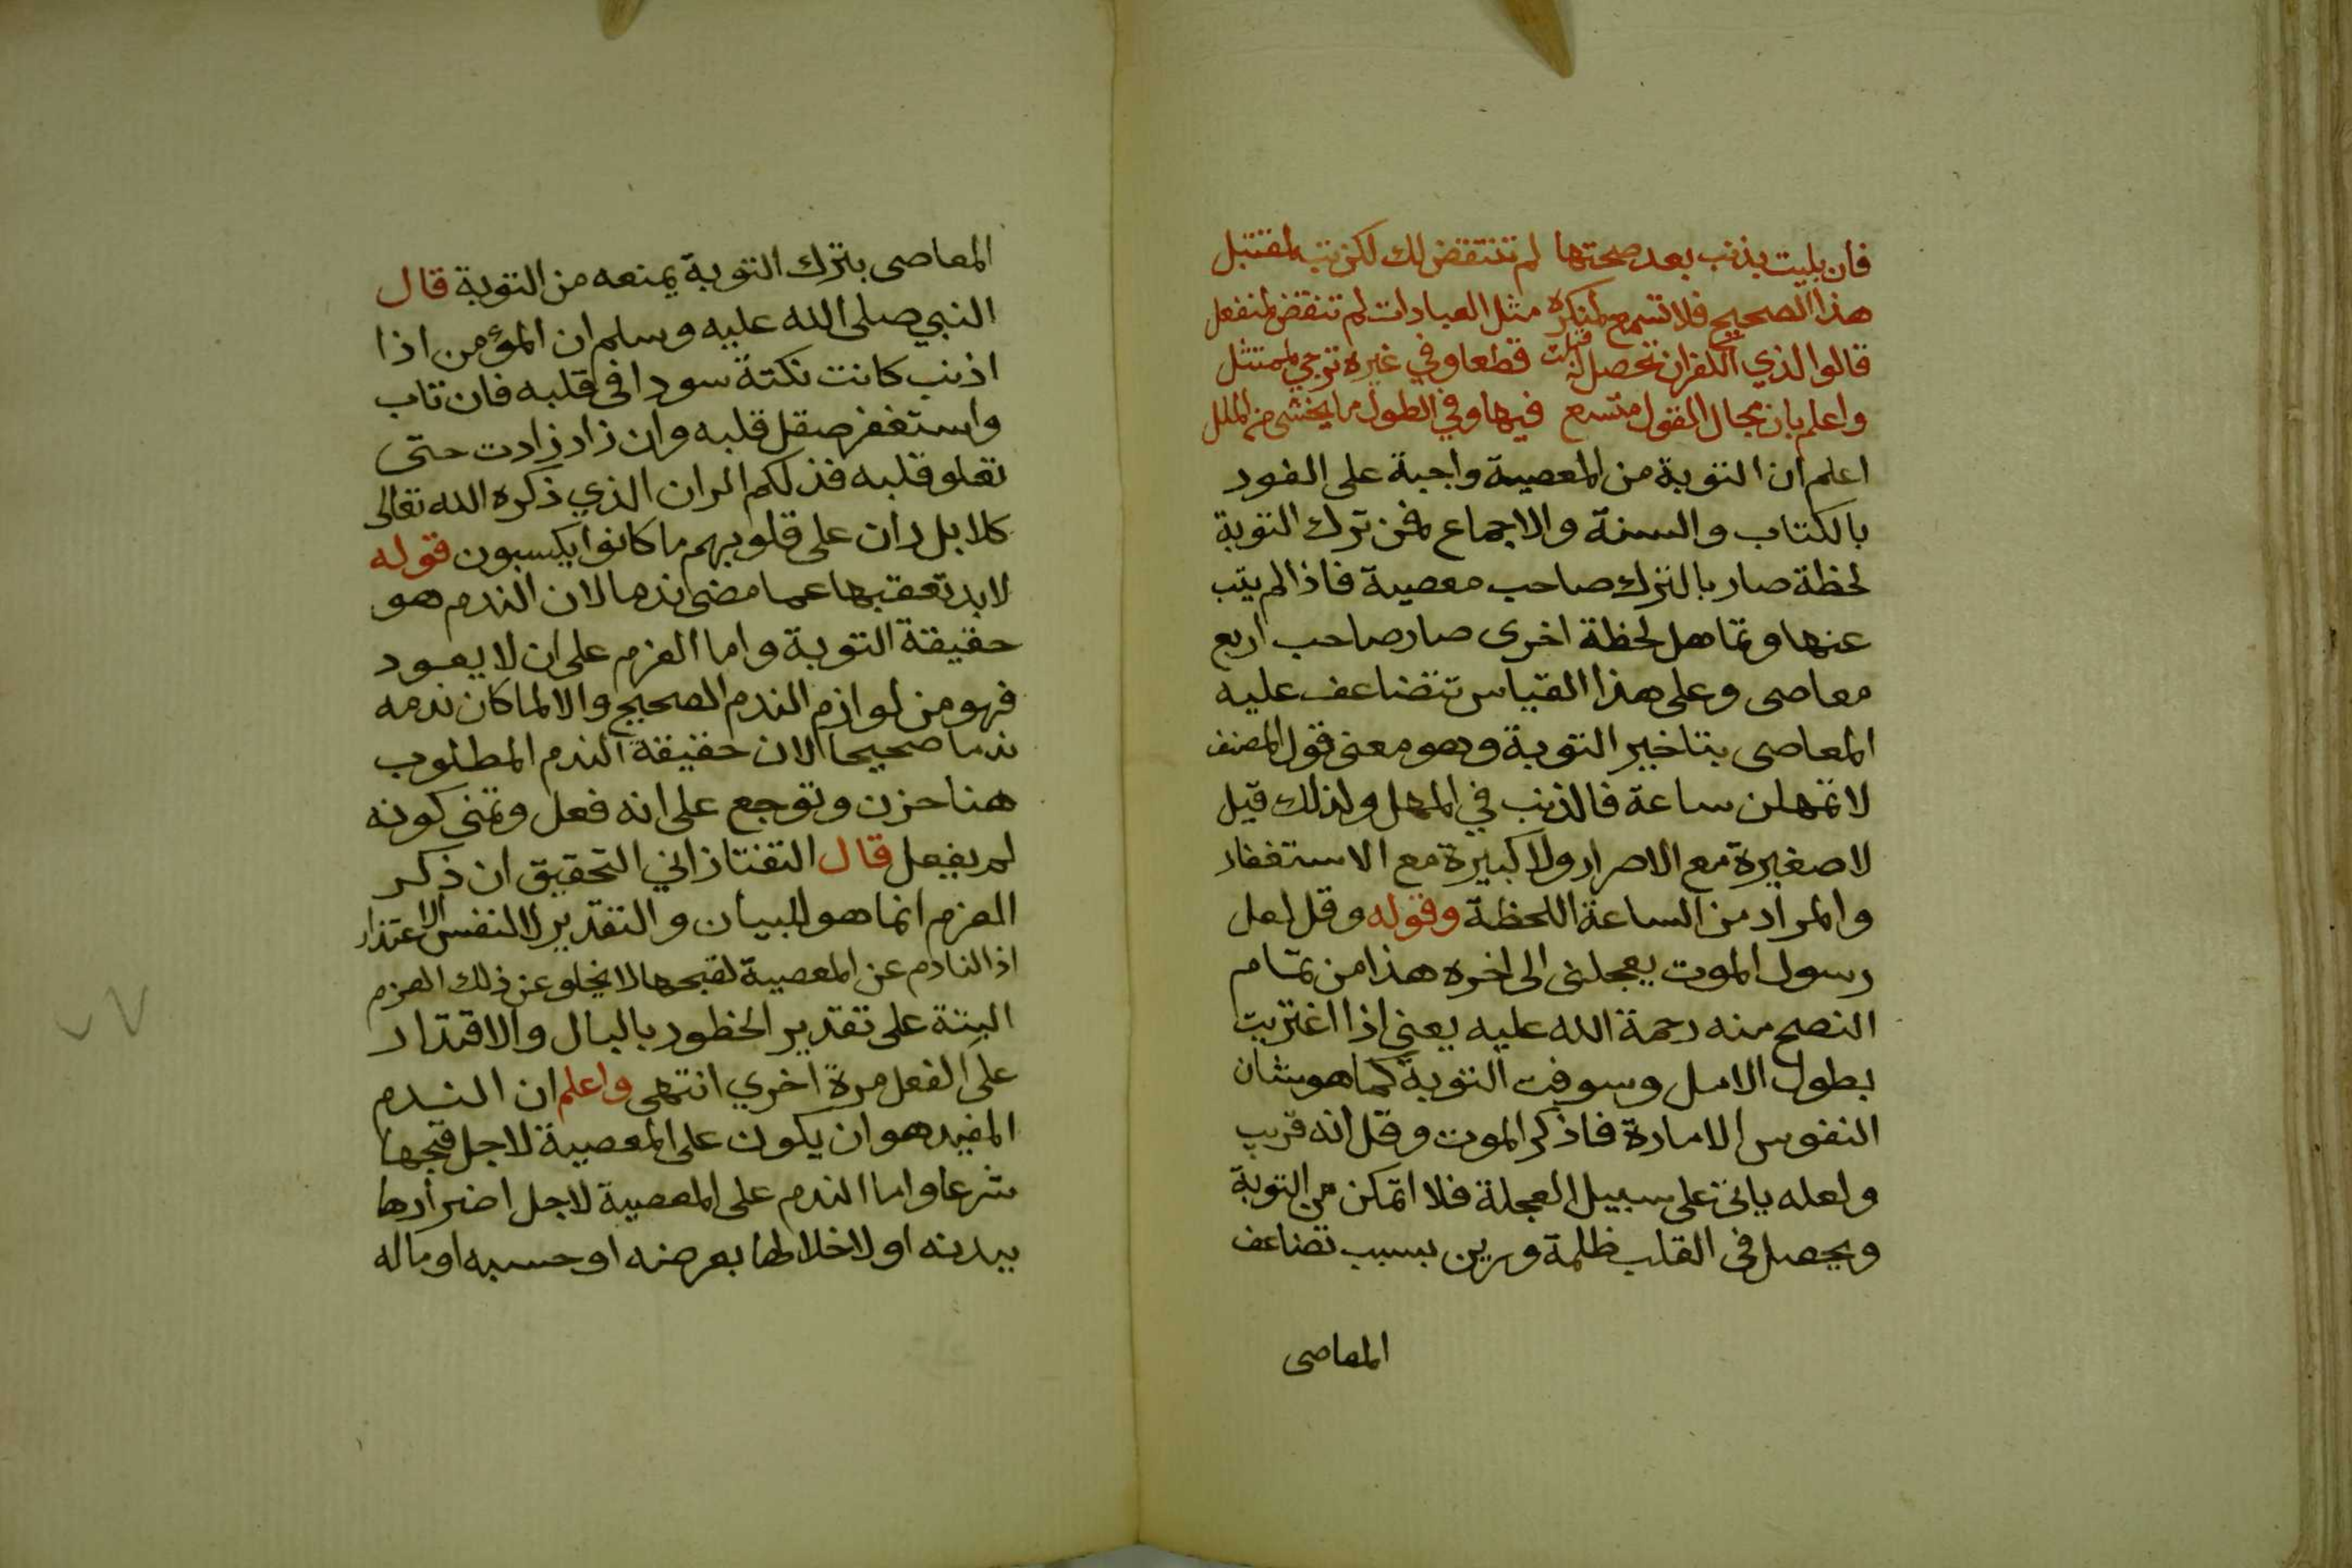 فان بليت بذنب بعد صحتها لم تنتقض لك لكن تب لمقتبل
هذا الصحيح فلا تسمع لمنكره مثل العبادات لم تنقض لمنفعل
قالوا الذي الكفران تحصل قبلت قطعا وفي غيره ترجي لممتثل
واعلم بان مجال القول متسع فيها وفي الطول ما يخشى من الملل
اعلم ان التوبة من المعصية واجبة على الفور
بالكتاب والسنة والاجماع فمن ترك التوبة
لحظة صار بالترك صاحب معصية فاذا لم يتب
عنها وتماهل لحظة اخرى صار صاحب اربع
معاصى وعلى هذا القياس تتضاعف عليه
المعاصى بتاخير التوبة وهو معنى قول المصنف
لا تمهلن ساعة فالذنب في المهل ولذلك قيل
لا صغيرة مع الاصرار ولا كبيرة مع الاستغفار
والمراد من الساعة اللحظة وقوله وقل لعل
رسول الموت يعجلنى الى اخره هذا من تمام
النصح منه رحمة الله عليه يعني اذا اغتريت
بطول الامل وسوفت التوبة كما هو شان
النفوس الامارة فاذكر الموت وقل انه قريب
ولعله ياتى على سبيل العجلة فلا اتمكن من التوبة
ويحصل فى القلب ظلمة ورين بسبب تضاعف
المعاصى
المعاصى بترك التوبة يمنعه من التوبة قال
النبي صلى الله عليه وسلم ان المؤمن اذا
اذنب كانت نكتة سودا فى قلبه فان تاب
واستغفر صقل قلبه وان زاد زادت حتى
تعلو قلبه فذلكم الران الذي ذكره الله تعالى
كلا بل ران على قلوبهم ما كانوا يكسبون قوله
لابد تعقبها عما مضى ندما لان الندم هو
حقيقة التوبة واما العزم على ان لا يعود
فهو من لوازم الندم الصحيح والا لما كان ندمه
ندما صحيحا لان حقيقة الندم المطلوب
هنا حزن وتوجع على انه فعل وتمنى كونه
لم يفعل قال التفتازاني التحقيق ان ذكر
العزم انما هو للبيان والتقدير لا لنفس الاعتذار
اذ النادم عن المعصية لقبحها لا يخلو عن ذلك العزم
البتة على تقدير الخطور بالبال والاقتدار
على الفعل مرة اخري انتهى واعلم ان الندم
المفيد هو ان يكون على المعصية لاجل قبحها
شرعا واما الندم على المعصية لاجل اضرارها
ببدنه او لاخلالها بعرضه او حسبه او ماله